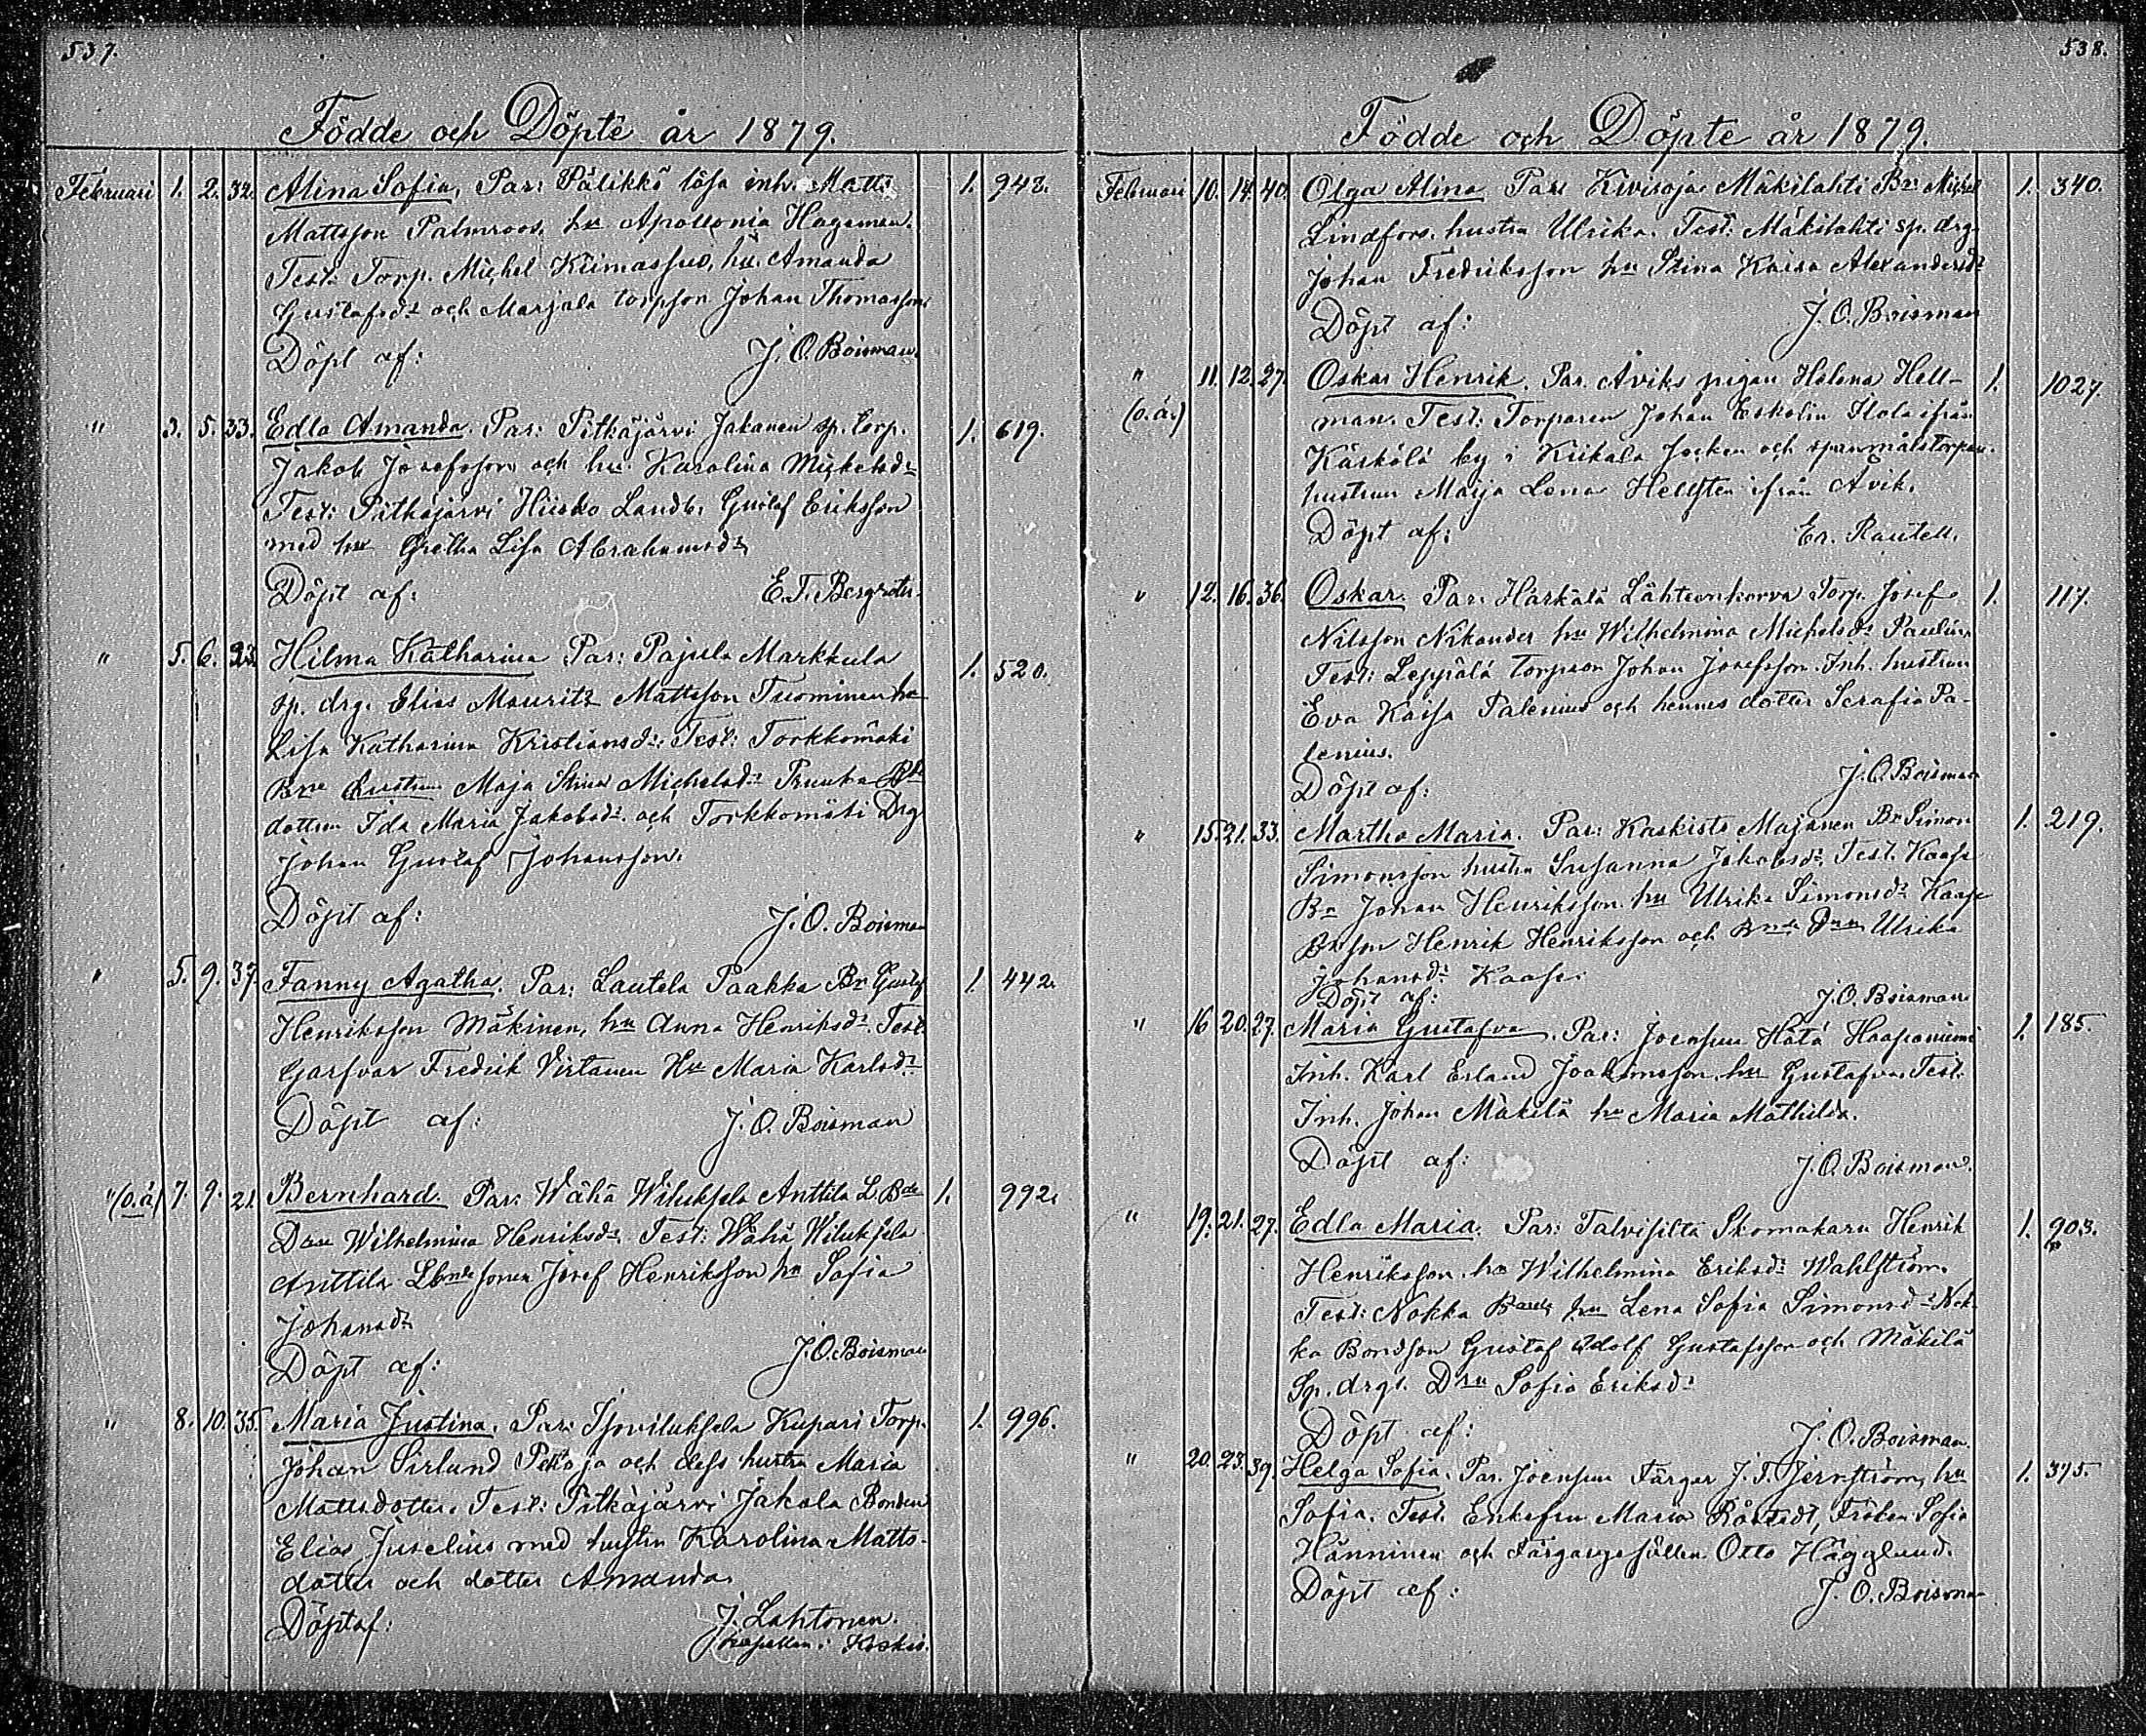 537.
Födde och Döpte år 1879.
Februari 1. 2. 32. Alina Sofia, Par: Pälikkö lösa inh. Matts 1. 948.
Mattsson Palmroos, hu Apollonia Hageman.
Test: Torp. Michel Kiimassuo, hu. Amanda
Gustafsdr och Marjala torpson Johan Thomasson
Döpt af: J. O. Boisman.
" 3. 5. 33. Edla Amanda. Par: Pitkäjärvi Jakanen sp. torp. 1. 619.
Jakob Josefsson och hu. Karolina Michelsdr
Test: Pitkäjärvi Hiisko Landb. Gustaf Eriksson
med hu Gretha Lisa Abrahamsdr
Döpt af: E. T. Bergroth.
" 5. 6. 23. Hilma Katharina Par: Pajula Markkula 1. 520.
sp. drg. Elias Mauritz Mattsson Tuominen hu
Lisa Katharina Kristiansdr. Test: Torkkomäki
Bne hustrun Maja Stina Michelsdr Prunka Bde
dottren Ida Maria Jakobsdr. och Torkkomäki Drg
Johan Gustaf Johansson.
Döpt af: J. O. Boisman
" 5. 9. 37. Fanny Agatha. Par: Lautela Paakka Bn Gustaf 1. 442.
Henriksson Mäkinen, hu Anna Henriksdr. Test.
Garfvar Fredrik Virtanen Hu Maria Karlsdr
Döpt af: J. O. Boisman
" (o.ä.) 7. 9. 21. Bernhard. Par: Wähä Wiluksela Anttila L Bde 1. 992.
Drn Wilhelmina Henriksdr. Test: Wähä Wiluksela
Anttila Lbnde sonen Josef Henriksson hu Sofia
Johansdr
Döpt af: J. O. Boisman
" 8. 10. 35. Maria Justina. Par: Isoviluksela Kupari Torp. 1. 996.
Johan Sirlund Petoja och dess hustru Maria
Mattsdotter. Test: Pitkäjärvi Jakala Bonden
Elias Juselius med hustru Karolina Matts-
dotter och dotter Amanda.
Döpt af: J. Lahtonen.
kapellan i Koskis.
538.
Födde och Döpte år 1879.
Februari 10. 14. 40. Olga Alina Par: Kivisoja Mäkilahti Bn: Michel 1. 340.
Lindfors. hustru Ulrika. Test: Mäkilahti sp. drg.
Johan Fredriksson hu Stina Kaisa Alexandersdr
Döpt af: J. O. Boisman
" (o.ä.) 11. 12. 27. Oskar Henrik. Par. Åviks pigan Helena Hell- 1. 1027.
man. Test: Torparen Johan Eskolin Hola ifrån
Kärkölä by i Kiikala Socken och spanmålstorpar-
hustrun Maija Lena Hellsten ifrån Åvik.
Döpt af: Er. Rautell.
" 12. 16. 36. Oskar. Par: Härkälä Lähteenkorva Torp. Josef 1. 117.
Nilsson Nikander hu Wilhelmina Michelsdr Paulin.
Test: Leppälä torpson Johan Josefsson. Inh. hustrun
Eva Kaisa Palenius och hennes dotter Serafia Pa-
lenius.
Döpt af: J. O. Boisman
" 15. 21. 33. Martha Maria. Par: Kaskisto Majanen Bn Simon 1. 219.
Simonsson hustru Susanna Jakobsdr. Test. Kaase
Bn Johan Henriksson hu Ulrika Simonsdr Kaase
Bdeson Henrik Henriksson och Bnde Drn Ulrika
Johansdr Kaase.
Döpt af: J. O. Boisman
" 16 20. 27. Maria Gustafva. Par: Joensuu Hätä Haapaniemi 1. 185.
Inh. Karl Erland Joakimsson. hu Gustafva. Test.
Inh. Johan Mäkilä hu Maria Mathilda.
Döpt af: J. O. Boisman.
" 19. 21. 27. Edla Maria. Par: Talvisilta Skomakarn Henrik 1. 903.
Henriksson. hu Wilhelmina Eriksdr Wahlström.
Test: Nokka Bands hu Lena Sofia Simonsdr Nok-
ka Bondson Gustaf Adolf Gustafsson och Mäkilä
Sp. drgs. Drn Sofia Eriksdr
Döpt af: J. O. Boisman.
" 20. 23. 39. Helga Sofia. Par. Joensuu Färgar J. F. Jernström, hu 1. 375.
Sofia. Test. Enkefru Maria Råstedt, Fröken Sofia
Hänninen och Färgargesällen Otto Hägglund.
Döpt af: J. O. Boisman